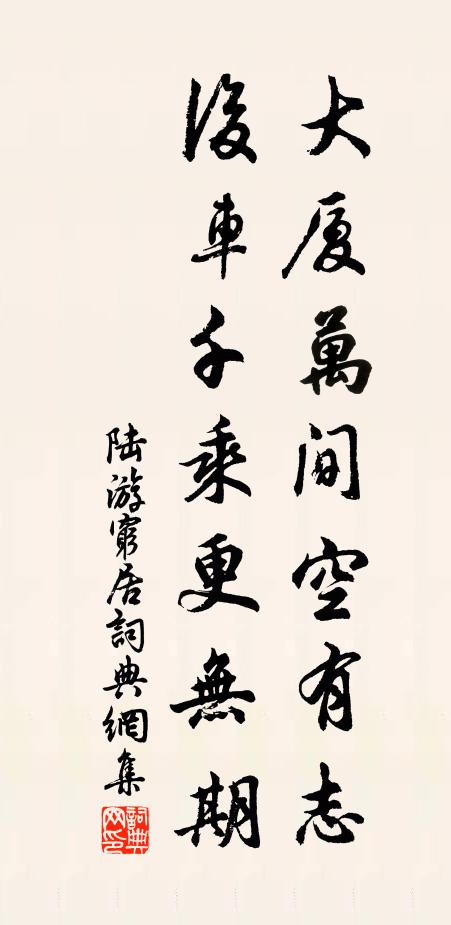 大厦萬间空有志
後車千乘更無期
陆游窮居詞典網集
詞典网印